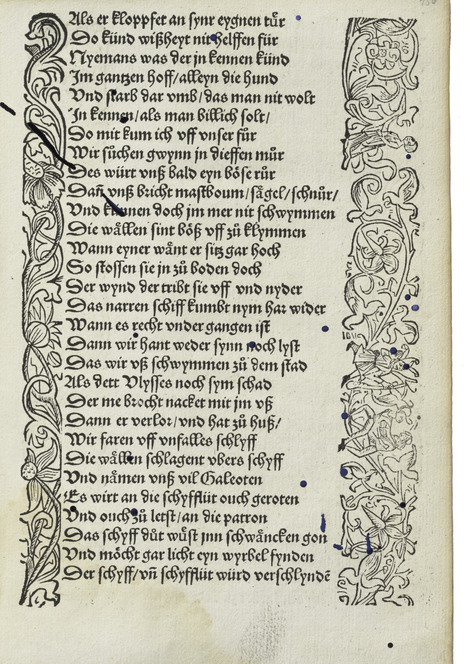 Als er kloppfet an synr eygnen tür
Do künd wißheyt nit helffen für
Nyemans was der jn kennen künd
Im gantzen hoff/alleyn die hund
Vnd starb dar vmb/das man nit wolt
In kennen/als man billich solt/
Do mit kum ich vff vnser für
Wir süchen gwynn jn dieffen mür
Des würt vnß bald eyn böse rür
Dañ vnß bricht mastboum/sägel/schnür/
Vnd künnen doch jm mer nit schwymmen
Die wällen sint böß vff zů klymmen
Wann eyner wänt er sitz gar hoch
So stossen sie jn zů boden doch
Der wynd der tribt sie vff vnd nyder
Das narren schiff kumbt nym har wider
Wann es recht vnder gangen ist
Dann wir hant weder synn noch lyst
Das wir vß schwymmen zů dem stad
Als dett Vlysses noch sym schad
Der me brocht nacket mit jm vß
Dann er verlor/vnd hat zů huß/
Wir faren vff vnfalles schlyff
Die wällen schlagent vbers schyff
Vnd nämen vnß vil Galeoten
Es wirt an die schyfflüt ouch geroten
Vnd ouch zů letst/an die patron
Das schyff důt wůst jnn schwäncken gon
Vnd möcht gar licht eyn wyrbel fynden
Der schyff/vñ schyfflüt würd verschlyndē